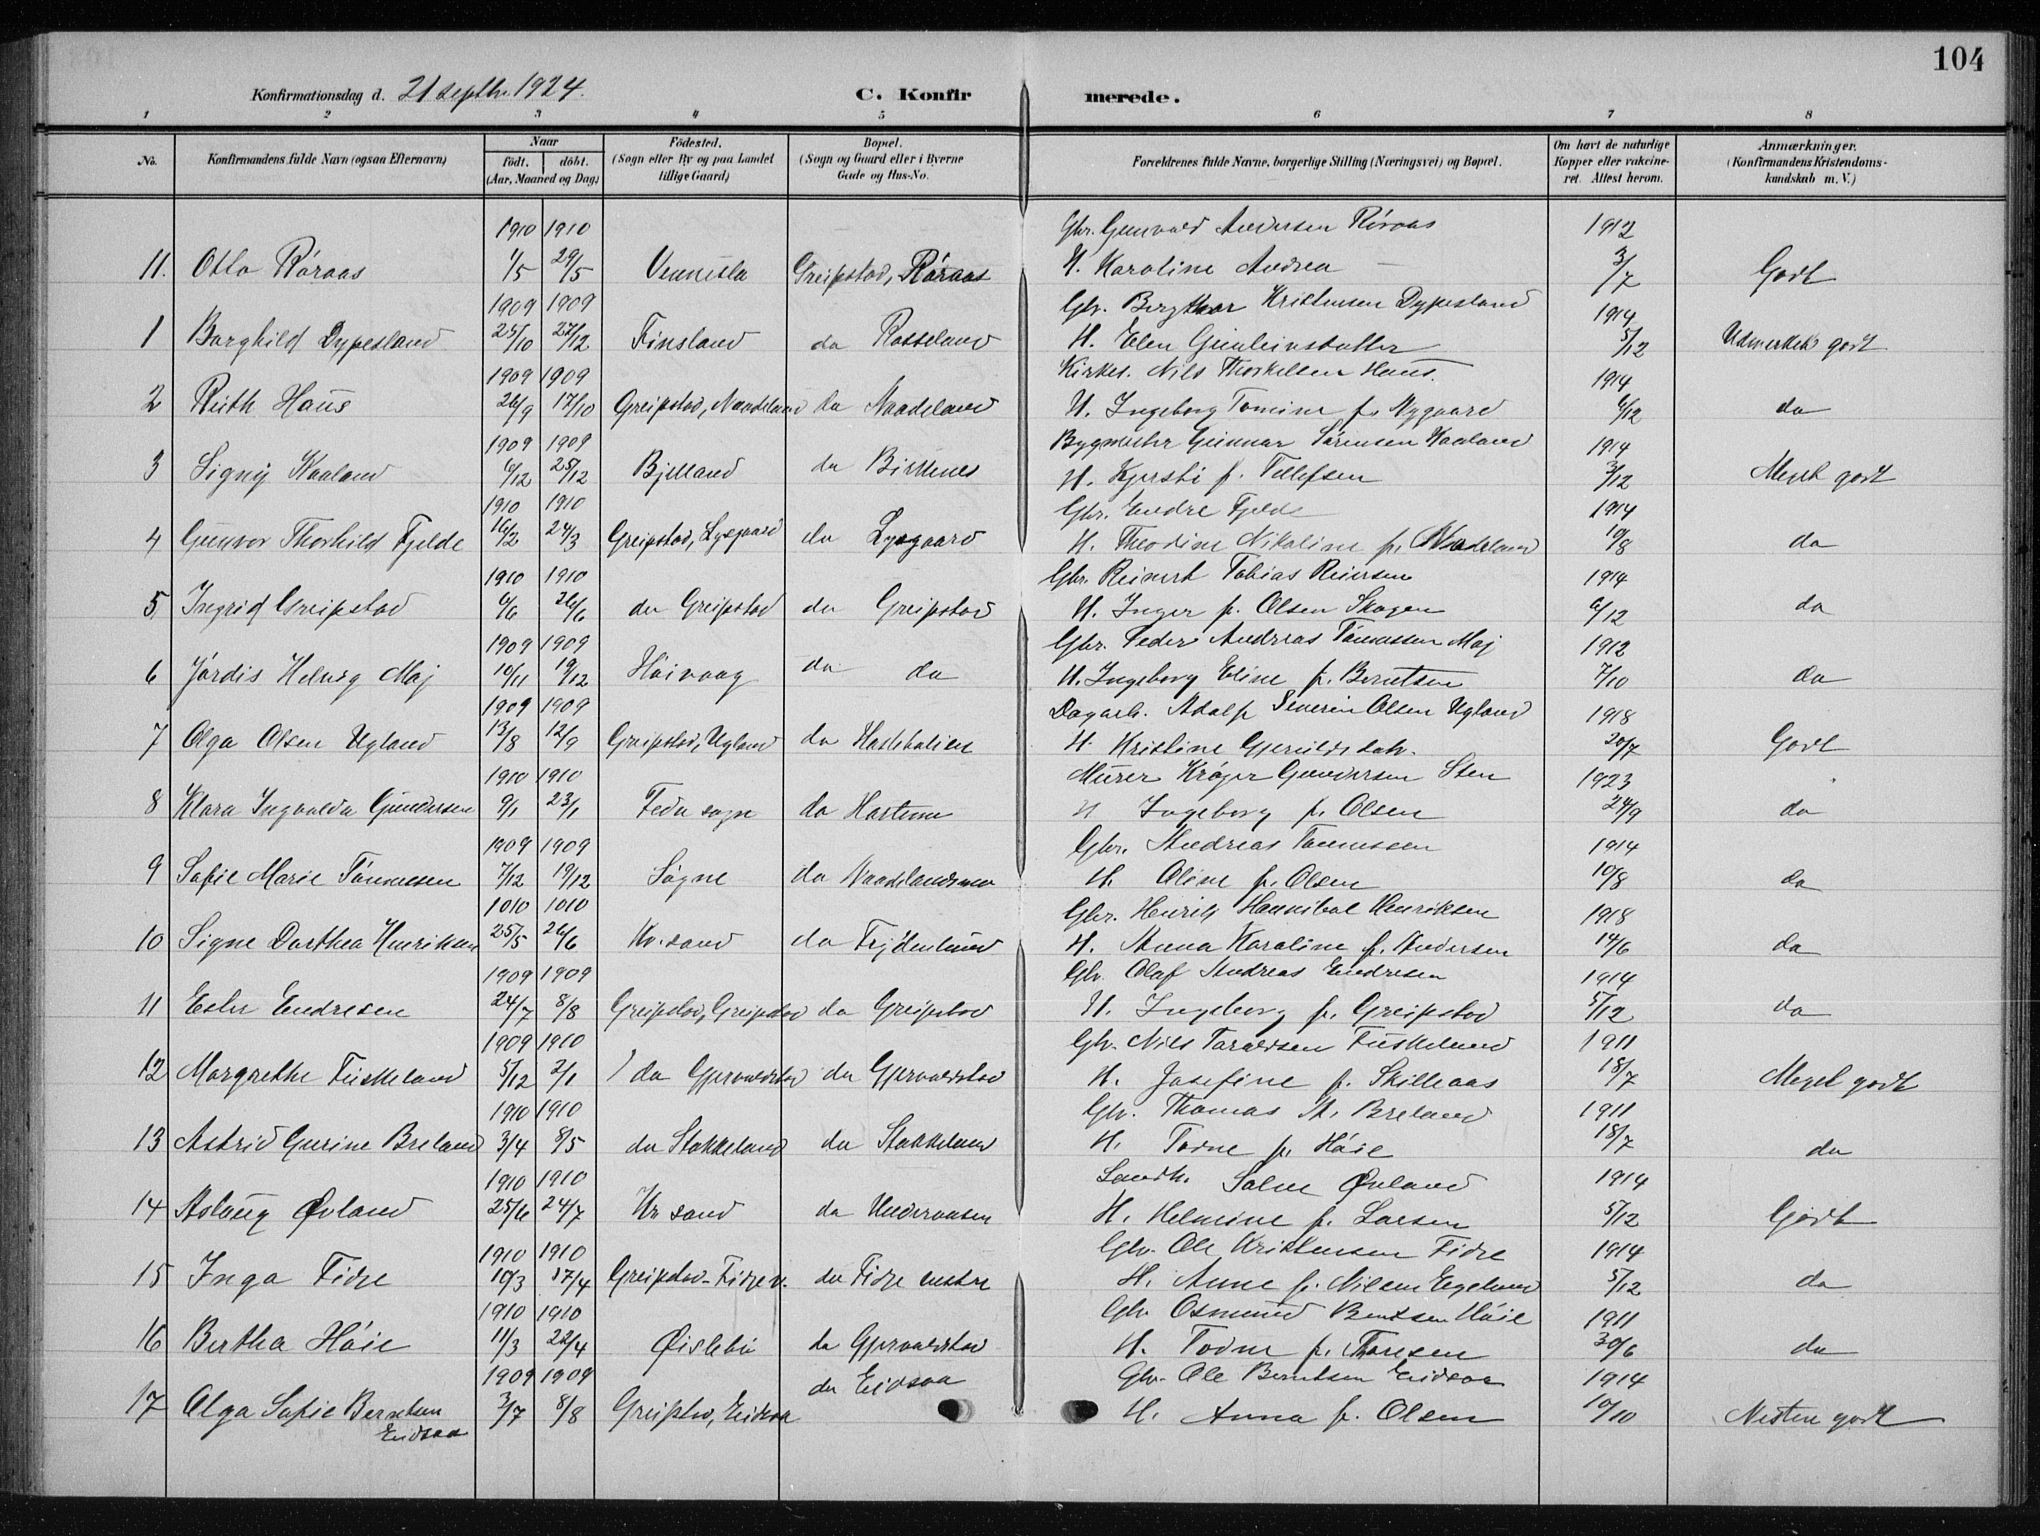 104
Konfirmationsdag d. 21 septbr. 1924.
C. Konfirmerede.
1 2 3 4 5 6 7 8
No. Konfirmandens fulde Navn (ogsaa Efternavn) Naar födt. döbt. (Aar, Maaned og Dag) Födested. (Sogn eller By og paa Landet tillige Gaard) Bopæl. (Sogn og Gaard eller i Byerne Gade og Hus-No. Forældrenes fulde Navne, borgerlige Stilling (Næringsvei) og Bopæl. Om havt de naturlige Kopper eller vakcineret. Attest herom. Anmærkninger. (Konfirmandens Kristendomskundskab m. V.)
1910 1910 Gbr. Gunvald Andersen Röraas 1912
11. Otto Röraas 1/5 29/5 Vennesla Greipstad, Röraas H. Karoline Andrea — 3/7 Godt
1909 1909 Gbr. Bergthor Kristensen Dypesland 1914
1 Borghild Dypesland 25/10 27/12 Finsland do Rosseland H. Elen 5/12 Udmerket godt
1909 1909 Kirkes. Nils Thorkelsen Haus. 1914
2 Ruth Haus 26/9 17/10 Greipstad, Naadeland do Naadeland H. Ingeborg Tomine f. Nygaard 6/12 do
1909 1909 Bygmester Gunnar Sørensen Kaaland 1914
3 Signy Kaaland 6/12 25/12 Bjelland do Birkenes H. Kjersti f. Tellefsen 3/12 Meget godt
1910 1910 Gbr. Endre Fjelde 1914
4 Gunvor Thorhild Fjelde 16/2 24/3 Greipstad, Lysgaard do Lysgaard H. Theodine Nikoline f. Naadeland 10/8 do
1910 1910 Gbr. Reinert Tobias Reiersen 1914
5 Ingrid Greipstad 6/6 26/6 do Greipstad do Greipstad H. Inger f. Olsen Skogen 6/12 do
1909 1909 Gbr. Peder Andreas Tönnessen Maj 1912
6 Jördis Helvig Maj 10/11 19/12 Höivaag do do H. Ingeborg Eline f. Berntsen 7/10 do
1909 1909 Dagarb. Adolf Severin Olsen Ugland 1918
7 Olga Olsen Ugland 13/8 12/9 Greipstad, Ugland do H. Kristine 20/7 Godt
1910 1910 Murer Krøger Gundersen Sten 1923
8 Klara Ingvalda Gundersen 9/1 23/1 Feda sogn do H Ingeborg f. Olsen 24/9 do
1909 1909 Gbr. Andreas Tönnessen 1914
9 Sofie Marie Tönnesen 7/12 19/12 Søgne do H. Oline f. Olsen 10/8 do
1910 1910 Gbr. Henrik Hannibal Henriksen 1918
10 Signe Dorthea Henriksen 25/5 26/6 Kr.sand do H. Anna Karoline f. Andersen 14/6 do
1909 1909 Gbr. Olaf Andreas Endresen 1914
11 Ester Endresen 24/7 8/8 Greipstad, Greipstad do Greipstad H. Ingeborg f. Greipstad 5/12 do
1909 1910 Gbr. Nils Taraldsen Fuskeland 1911
12 Margrethe Fuskeland 5/12 2/1 do Gjervaldstad do Gjervaldstad H. Josefine f. Skilleaas 18/7 Meget godt
1910 1910 Gbr. Thomas A. Breland 1911
13 Astrid Gurine Breland 3/4 8/5 do Stokkeland do Stokkeland H. Torne f. Höie 18/7 do
1910 1910 Landh. Salve Øvland 1914
14 Aslaug Øvland 25/6 24/7 Kr sand do Underaasen H. Helmine f. Larsen 5/12 Godt
1910 1910 Gbr. Ole Kristensen Fidje 1914
15 Inga Fidje 10/3 17/4 Greipstad - Fidje v. do Fidje vestre H. Anne f. Nilsen Eigeland 5/12 do
1910 1910 Gbr Osmund Bentsen Höie 1911
16 Bertha Höie 11/3 22/4 Øislebø do Gjervaldstad H. Torne f. Thoresen 30/6 do
1909 1909 Gbr. Ole Berntsen Eidsaa 1914
17 Olga Sofie Berntsen Eidsaa 3/7 8/8 Greipstad, Eidsaa do Eidsaa H. Anna f. Olsen 10/10 Nesten godt